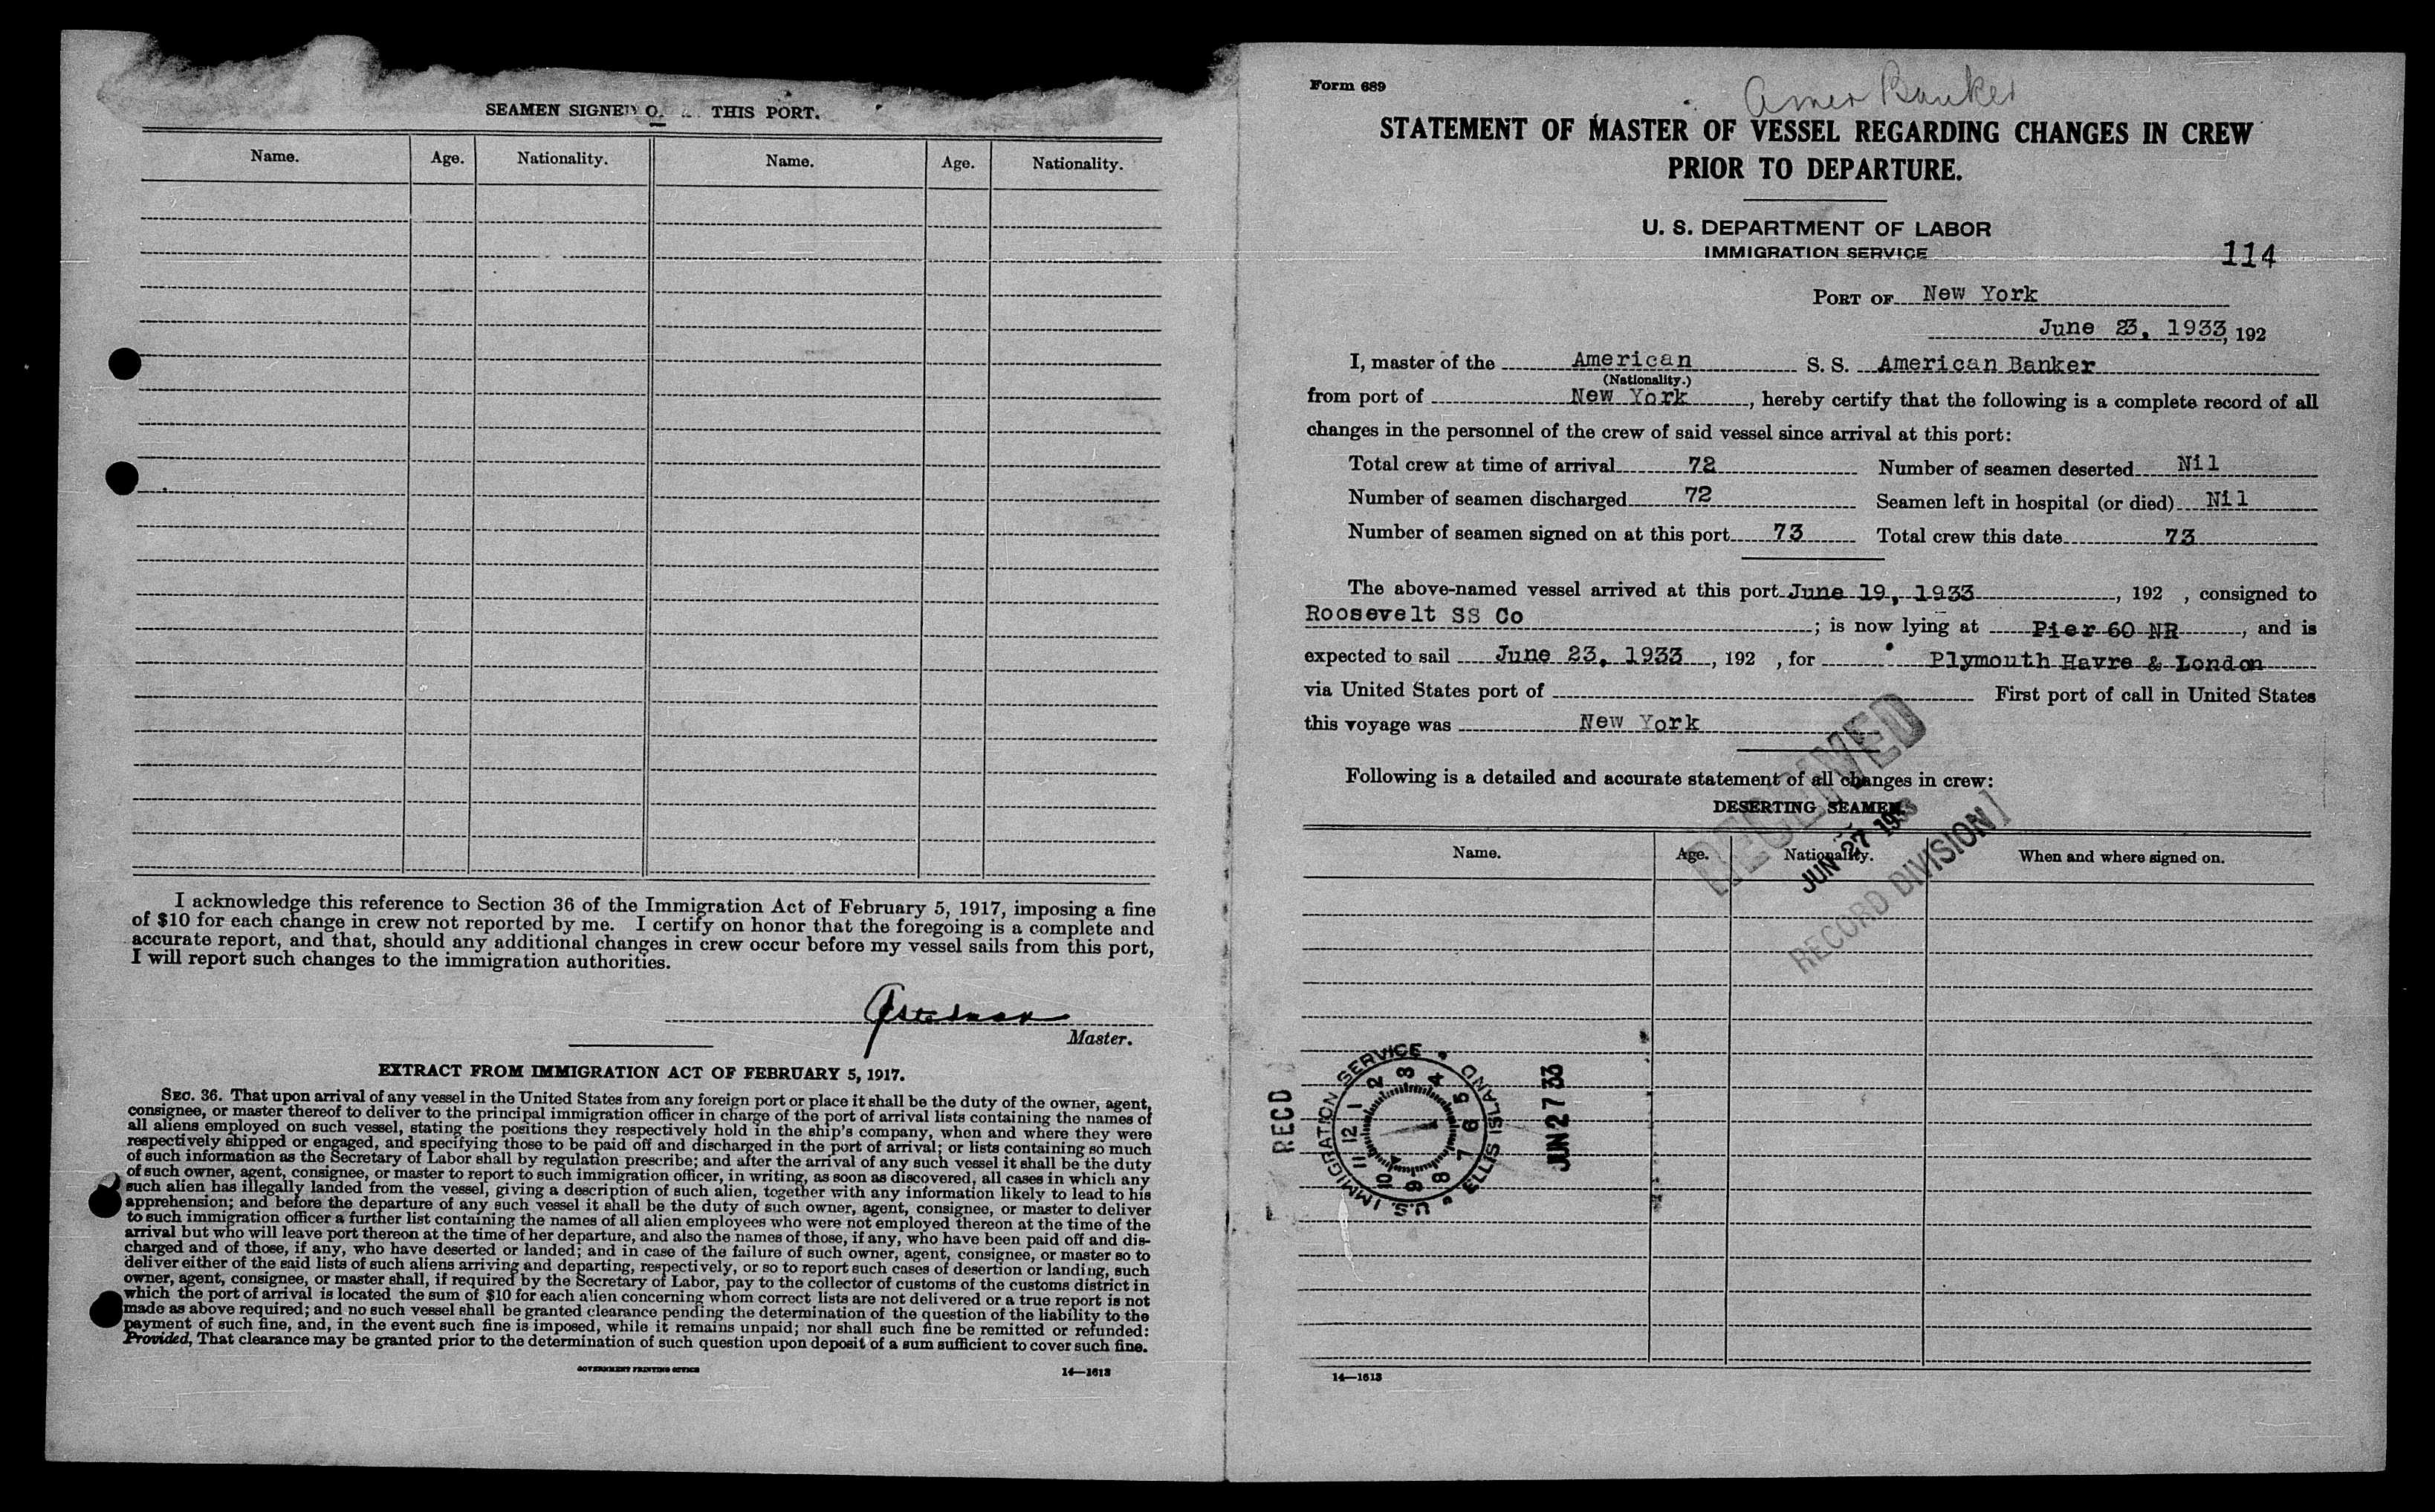 SEAMEN SIGNED O. THIS PORT.
Name. Age. Nationality. Name. Age. Nationality.
I acknowledge this reference to Section 36 of the Immigration Act of February 5, 1917, imposing a fine
of $10 for each change in crew not reported by me. I certify on honor that the foregoing is a complete and
accurate report, and that, should any additional changes in crew occur before my vessel sails from this port,
I will report such changes to the immigration authorities.
Master.
EXTRACT FROM IMMIGRATION ACT OF FEBRUARY 5, 1917.
SEC. 36. That upon arrival of any vessel in the United States from any foreign port or place it shall be the duty of the owner, agent,
consignee, or master thereof to deliver to the principal immigration officer in charge of the port of arrival lists containing the names of
all aliens employed on such vessel, stating the positions they respectively hold in the ship's company, when and where they were
respectively shipped or engaged, and specifying those to be paid off and discharged in the port of arrival; or lists containing so much
of such information as the Secretary of Labor shall by regulation prescribe; and after the arrival of any such vessel it shall be the duty
of such owner, agent, consignee, or master to report to such immigration officer, in writing, as soon as discovered, all cases in which any
such alien has illegally landed from the vessel, giving a description of such alien, together with any information likely to lead to his
apprehension; and before the departure of any such vessel it shall be the duty of such owner, agent, consignee, or master to deliver
to such immigration officer a further list containing the names of all alien employees who were not employed thereon at the time of the
arrival but who will leave port thereon at the time of her departure, and also the names of those, if any, who have been paid off and dis-
charged and of those, if any, who have deserted or landed; and in case of the failure of such owner, agent, consignee, or master so to
deliver either of the said lists of such aliens arriving and departing, respectively, or so to report such cases of desertion or landing, such
owner, agent, consignee, or master shall, if required by the Secretary of Labor, pay to the collector of customs of the customs district in
which the port of arrival is located the sum of $10 for each alien concerning whom correct lists are not delivered or a true report is not
made as above required; and no such vessel shall be granted clearance pending the determination of the question of the liability to the
payment of such fine, and, in the event such fine is imposed, while it remains unpaid; nor shall such fine be remitted or refunded:
Provided, That clearance may be granted prior to the determination of such question upon deposit of a sum sufficient to cover such fine.
GOVERNMENT PRINTING OFFICE 14—1613
Form 689
Amer Banker
STATEMENT OF MASTER OF VESSEL REGARDING CHANGES IN CREW
PRIOR TO DEPARTURE.
U. S. DEPARTMENT OF LABOR
IMMIGRATION SERVICE
114
PORT OF New York
June 23, 1933, 192
I, master of the American S. S. American Banker
(Nationality.)
from port of New York, hereby certify that the following is a complete record of all
changes in the personnel of the crew of said vessel since arrival at this port:
Total crew at time of arrival 72 Number of seamen deserted Nil
Number of seamen discharged 72 Seamen left in hospital (or died) Nil
Number of seamen signed on at this port 73 Total crew this date 73
The above-named vessel arrived at this port June 19, 1933, 192 , consigned to
Roosevelt SS Co; is now lying at Pier 60 NR, and is
expected to sail June 23, 1933, 192 , for Plymouth Havre & London
via United States port of First port of call in United States
this voyage was New York
Following is a detailed and accurate statement of all changes in crew:
DESERTING SEAMEN.
Name. Age. Nationality. When and where signed on.
RECEIVED
JUN 27 1933
RECORD DIVISION
RECD
U.S. IMMIGRATION SERVICE • ELLIS ISLAND •
1 2 3 4 5 6 7 8 9 10 11 12
JUN 27 33
14—1613